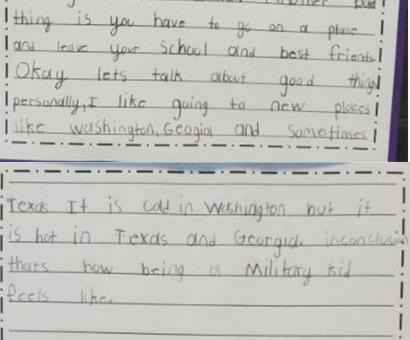 thing is you have to go on a plane
and leave your school and best friends!
Okay lets talk about good things
personally, I like going to new places
like washington, Geogia and Sometimes
Texas It is cold in Washington but it
is hot in Texas and Georgia. inconclusion
thats how being a Military kid
feels like.